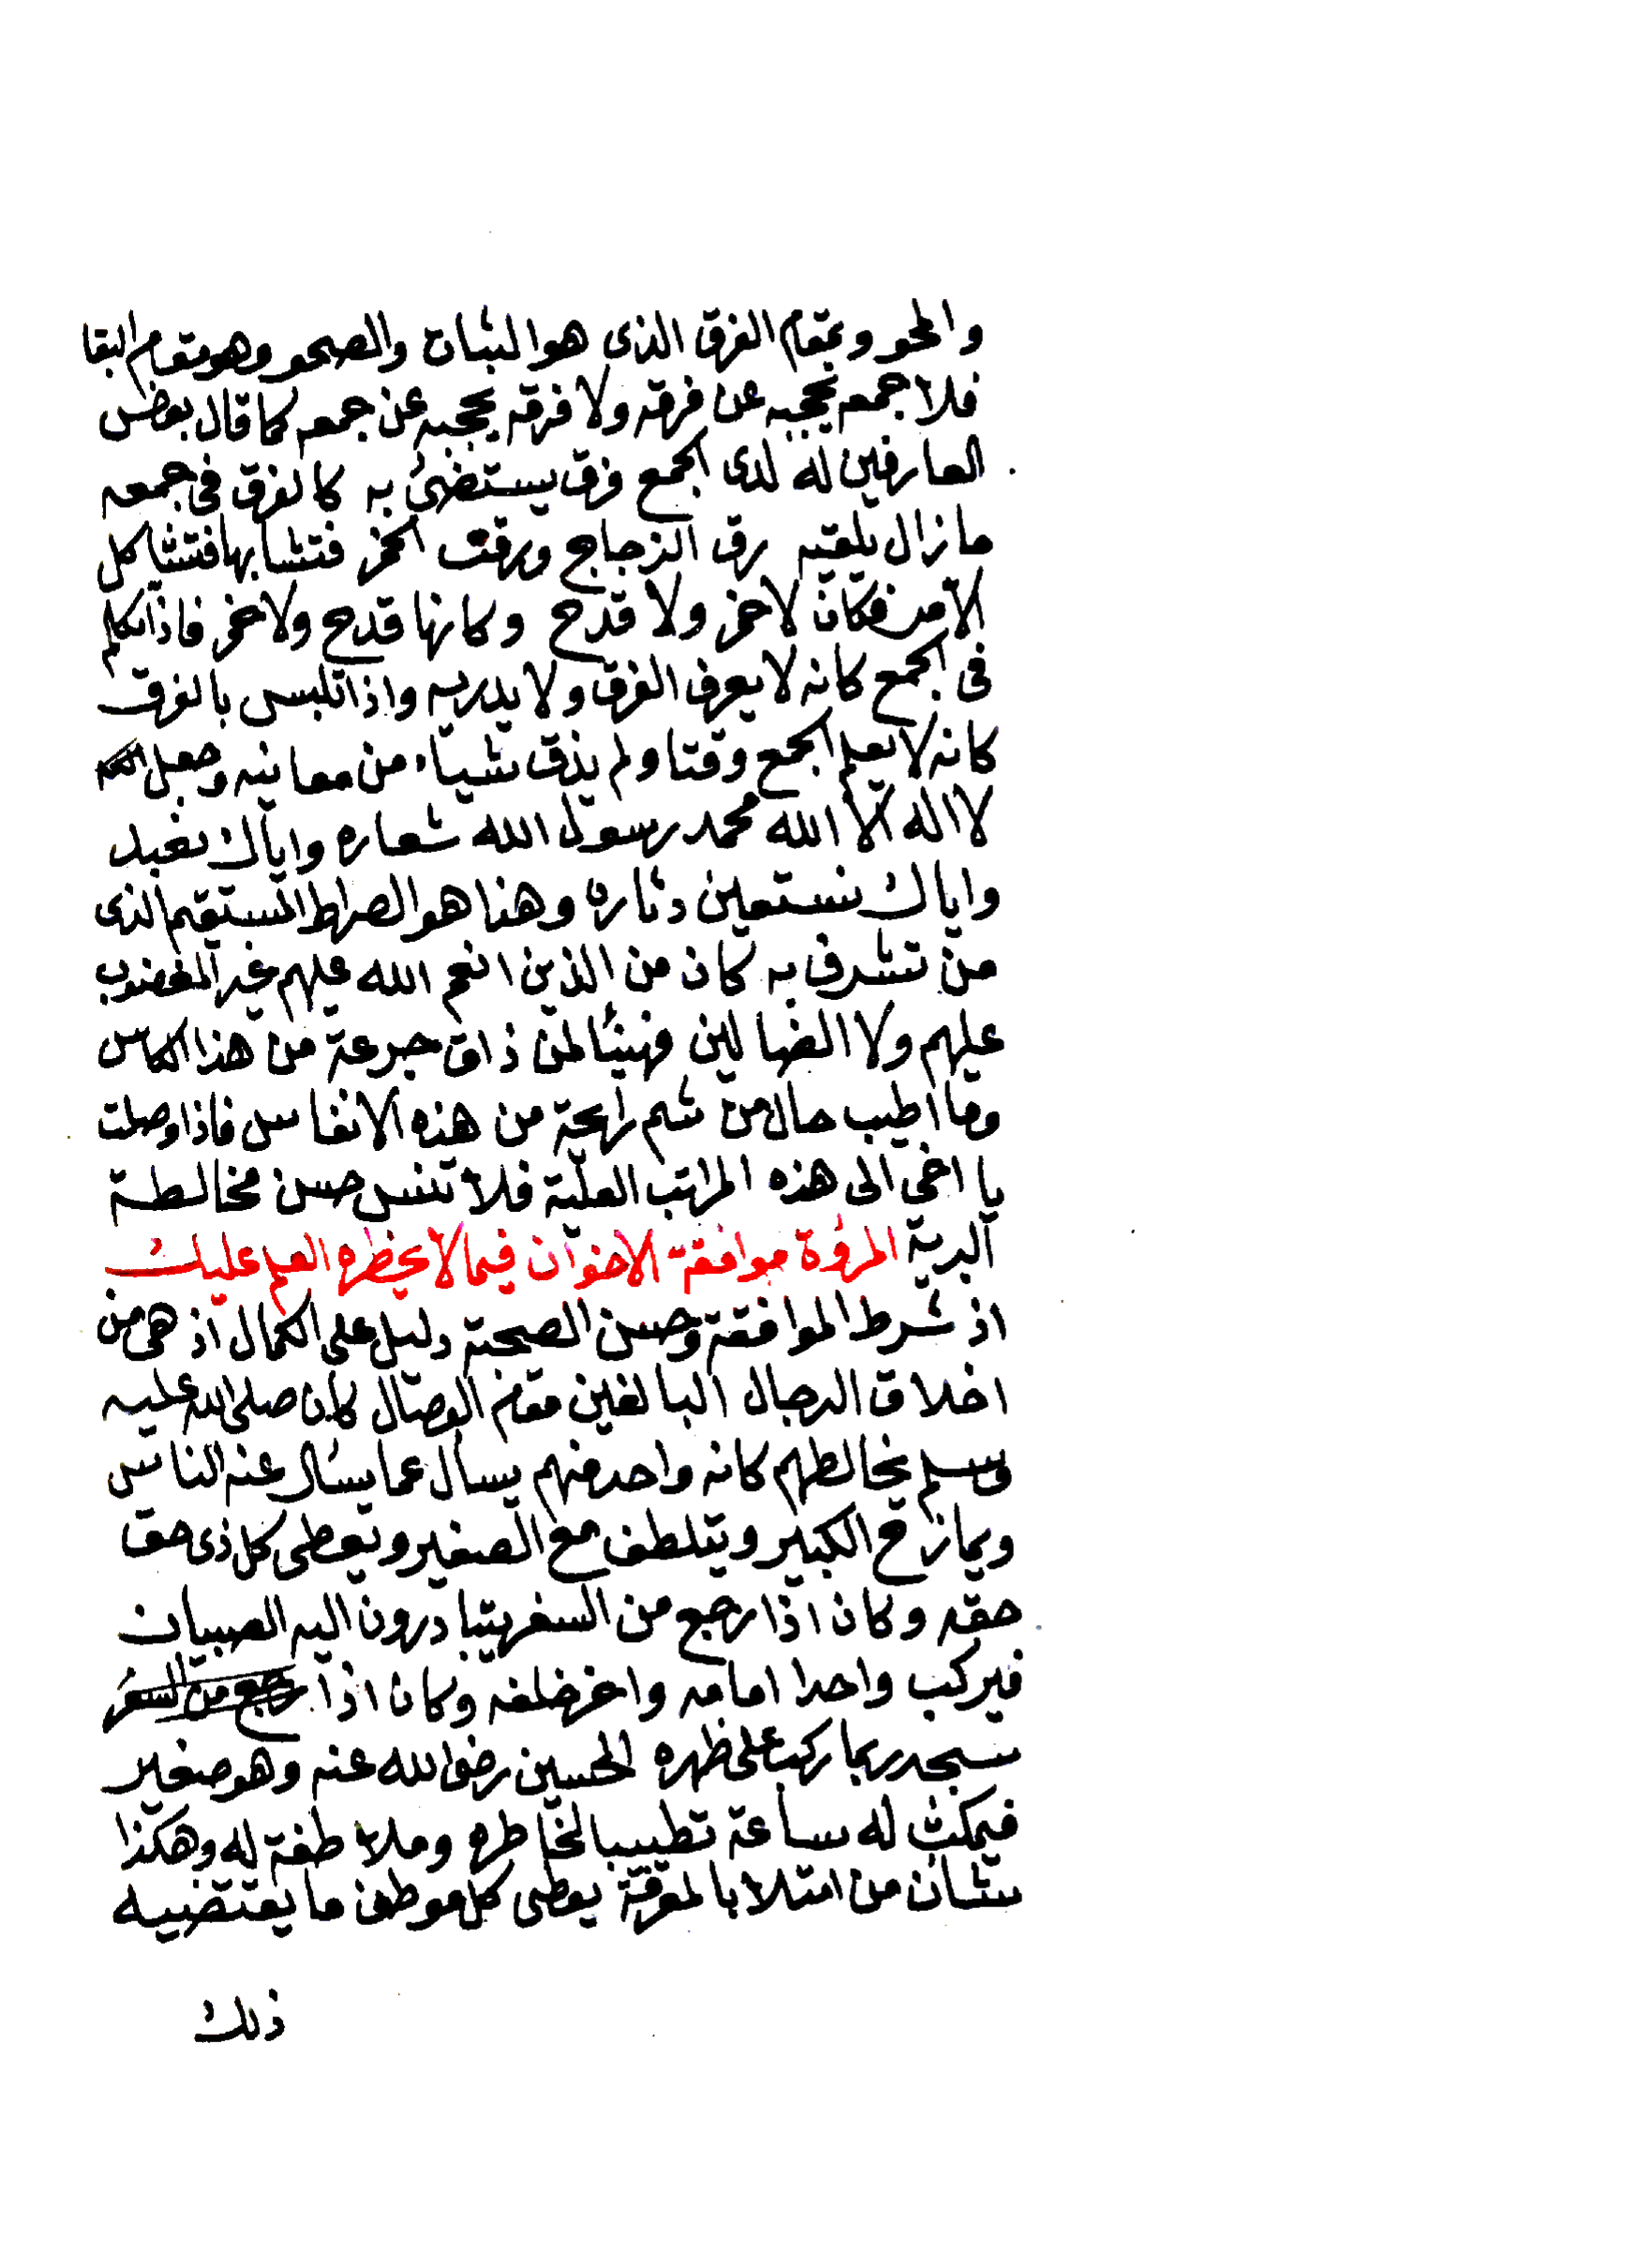 والمحو وبمقام الفرق الذى هو الثبات والصحو وهو مقام البقا
فلا جمعه يحجبه عن فرقه ولا فرقه يحجبه عن جمعه كما قال بعض
العارفين له لدى الجمع فرق يستضئ به كالفرق فى جمعه
مازال يلقيه رق الزجاج ورقت الخمر فتشابها فتشاكل
الامر فكان لاخمر ولا قدح وكانها قدح ولاخمر فاذا تكلم
فى الجمع كانه لا يعرف الفرق ولا يدريه واذا تلبس بالفرق
كانه لا يعلم الجمع وقتا ولم يذق شياء من معانيه وجعل
لا اله الا الله محمد رسول الله شعاره واياك نعبد
واياك نستعين دثاره وهذا هو الصراط المستقيم الذى
من تشرف به كان من الذين انعم الله عليهم غير المغضوب
عليهم ولا الضالين فهنيئا لمن ذاق جرعة من هذا الكاس
وما اطيب حال من شم رايحة من هذه الانفاس فاذا وصلت
يا اخى الى هذه المراتب العليّة فلا تنس حسن مخالطة
البرية المروة موافقة الاخوان فيما لا يحظره العلم عليك
اذ شرط الموافقة وحسن الصحبة دليل على الكمال اذ هى من
اخلاق الرجال البالغين مقام الوصال كان صلى الله عليه
وسلم يخالطهم كانه واحد منهم يسأل عما يسئال عنه الناس
ويمازح الكبير ويتلطف مع الصغير ويعطى كل ذى حق
حقه وكان اذا رجع من السفر يتبادرون اليه الصبيان
فيركب واحدا امامه واخر خلفه وكان اذا رجع من السفر
سجد ربما ركب على ظهره الحسين رضى الله عنه وهو صغير
فيمكث له ساعة تطييبا لخاطره وملاطفة له وهكذا
شان من امتلا بالمعرفة يعطى كل موطن ما يقتضيه
ذلك